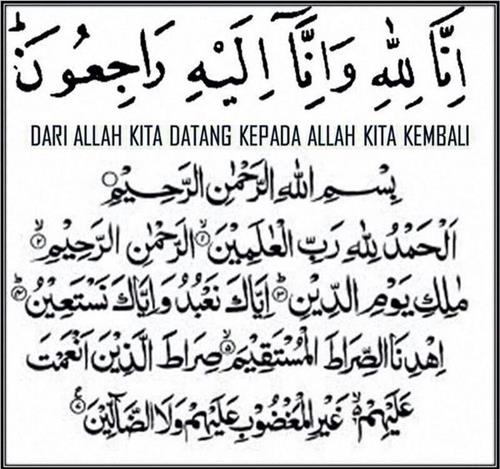 اِنَّا لِلّٰهِ وَاِنَّآ اِلَيْهِ رَاجِعُوْنَ ۗ
DARI ALLAH KITA DATANG KEPADA ALLAH KITA KEMBALI
بِسْمِ اللّٰهِ الرَّحْمٰنِ الرَّحِيْمِ ۝
اَلْحَمْدُ لِلّٰهِ رَبِّ الْعٰلَمِيْنَ ۙ۝۱ الرَّحْمٰنِ الرَّحِيْمِ ۙ۝۲
مٰلِكِ يَوْمِ الدِّيْنِ ۗ۝۳ اِيَّاكَ نَعْبُدُ وَاِيَّاكَ نَسْتَعِيْنُ ۗ۝۴
اِهْدِنَا الصِّرَاطَ الْمُسْتَقِيْمَ ۙ۝۵ صِرَاطَ الَّذِيْنَ اَنْعَمْتَ
عَلَيْهِمْ ۙ۝۶ غَيْرِ الْمَغْضُوْبِ عَلَيْهِمْ وَلَا الضَّآلِّيْنَ ۝۷